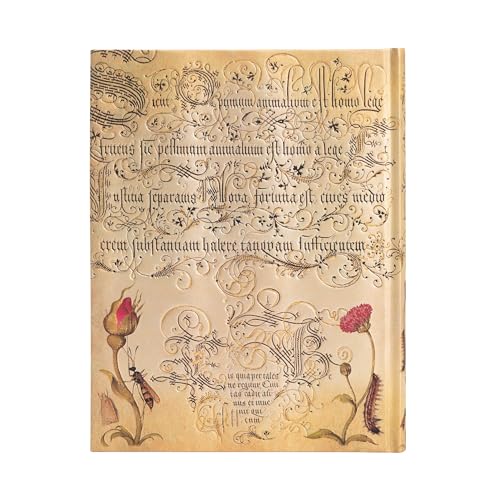 Sicut Optimum animalium est homo lege
fruens sic pessimum animalium est homo a lege Et
Iustitia separatus Nova fortuna est cives medio
crem substantiam habere tanquam sufficientem
Eis quia per tales
ne regitur Civi
tas cadit ali
nus et inue
nit qui
cum